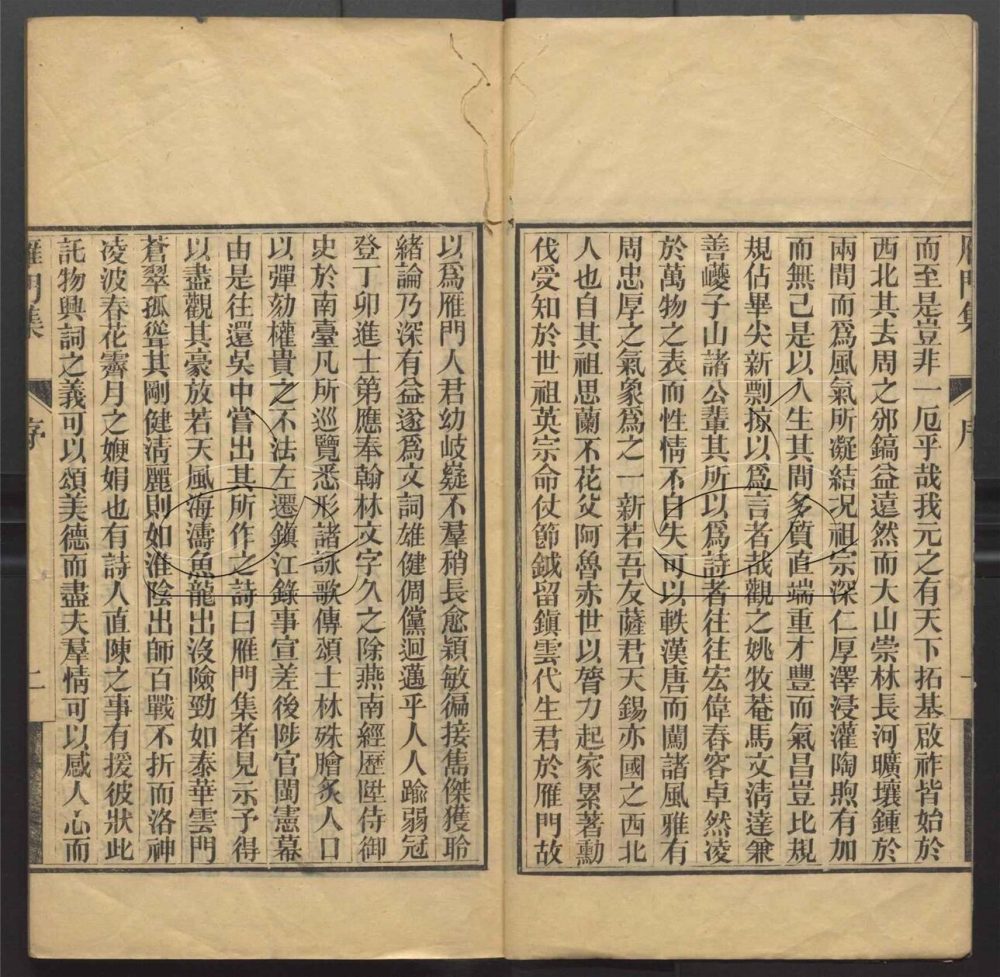 而至是豈非一厄乎哉我元之有天下拓基啟祚皆始於
西北其去周之邠鎬益遠然而大山崇林長河曠壤鍾於
兩間而爲風氣所凝結况祖宗深仁厚澤浸灌陶煦有加
而無已是以人生其間多質直端重才豐而氣昌豈比規
規佔畢尖新剽掠以爲言者哉觀之姚牧菴馬文清達兼
善巙子山諸公輩其所以爲詩者往往宏偉舂容卓然凌
於萬物之表而性情不自失可以軼漢唐而闖諸風雅有
周忠厚之氣象爲之一新若吾友薩君天錫亦國之西北
人也自其祖思蘭不花父阿魯赤世以膂力起家累著勳
伐受知於世祖英宗命仗節鉞留鎮雲代生君於雁門故
雁門集
序
二
以爲雁門人君幼岐嶷不羣稍長愈穎敏徧接雋傑獲聆
緒論乃深有益遂爲文詞雄健倜儻迥邁乎人人踰弱冠
登丁卯進士第應奉翰林文字久之除燕南經歷陞侍御
史於南臺凡所巡覽悉形諸詠歌傳頌士林殊膾炙人口
以彈劾權貴之不法左遷鎮江錄事宣差後陟官閩憲幕
由是往還吳中嘗出其所作之詩曰雁門集者見示予得
以盡觀其豪放若天風海濤魚龍出沒險勁如泰華雲門
蒼翠孤聳其剛健清麗則如淮陰出師百戰不折而洛神
凌波春花霽月之㛹娟也有詩人直陳之事有援彼狀此
託物興詞之義可以頌美德而盡夫羣情可以感人心而
雁門集
序
二